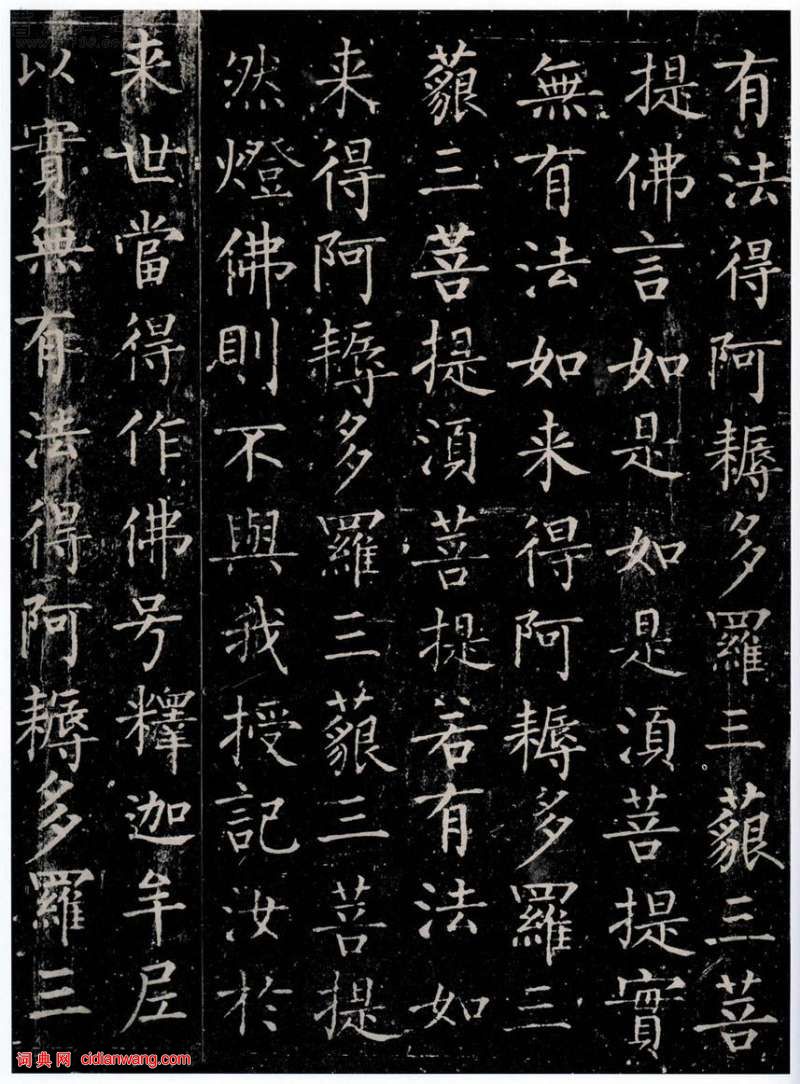 有法得阿耨多羅三藐三菩
提佛言如是如是湏菩提實
無有法如来得阿耨多羅三
藐三菩提湏菩提若有法如
来得阿耨多羅三藐三菩提
然燈佛則不與我授記汝於
来世當得作佛号釋迦牟尼
以實無有法得阿耨多羅三
词典网 cidianwang.com